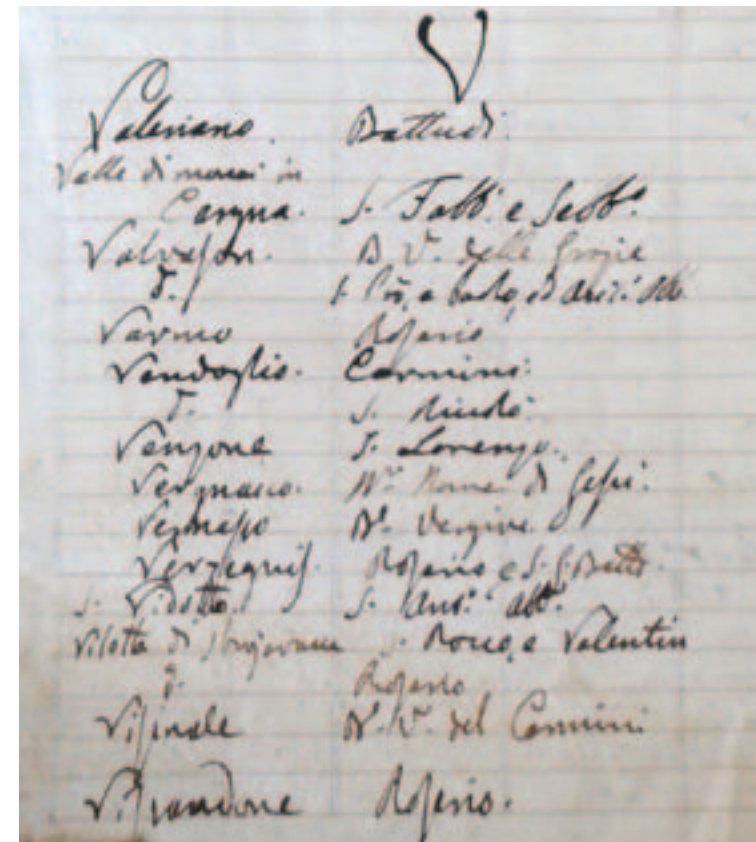 V
Valeriano. Battudi.
Valle di in
Cargna. S. Fabb. e Sebb.º
Valvason. B. V. delle Grazie
d.
Varmo Rosario
Vendoglio. Carmini.
d. S.
Venzone S. Lorenzo.
Vergnacco. Nome di Gesù.
Vernasso Bª. Vergine
Verzegnis. Rosario e S. G. Batta.
S. Vidotto. S. Antº. abb.
Vilotta di S. Rocco, e Valentin
d. Rosario
Visinale Bª. V. del Carmini
Vissandone Rosario.